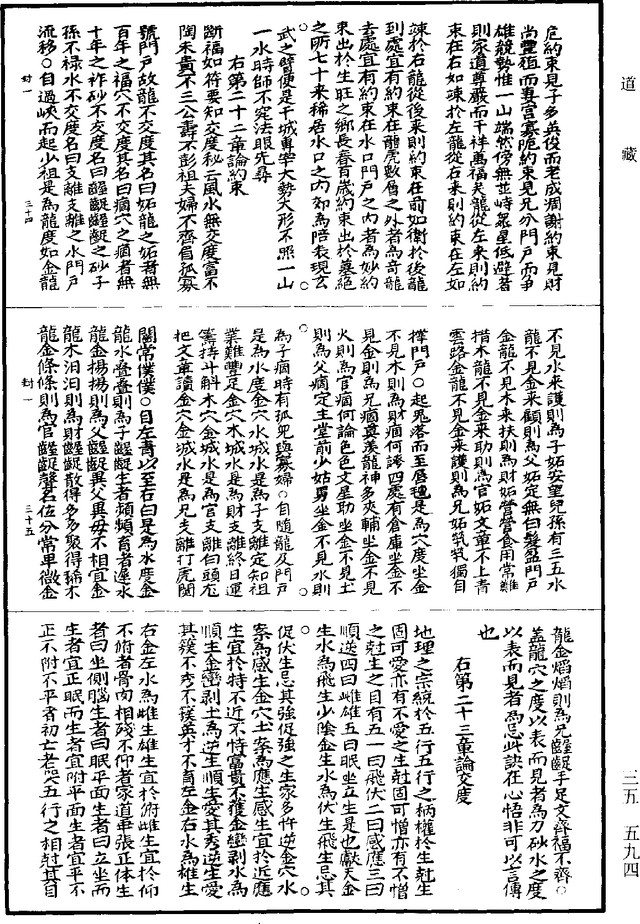 道藏
危約束見子多英俊而老成凋謝約束見財
尚豐殖而妻宮寡阨約束見兄分門戶而爭
雄競勢惟一山端然傍無並峙衆星低避著
則家道尊嚴而千祥萬福矣龍從左來則約
束在右如竦於左龍從右來則約束在左如
竦於右龍從後來則約束在前如衛於後龍
到處宜有約束在龍虎數層之外者爲奇龍
去處宜有約束在水口門戶之內者爲妙約
束出於生旺之鄉長春百歲約束出於墓絕
之所七十來稀居水口之內郊爲陪表現玄
武之臂便是干城專宰大勢大形不照一山
一水時師不究法眼先尋
右第二十二章論約束
斷禍如符要知交度秘云風水無交度富不
陶朱貴不三公壽不彭祖夫婦不齊眉孤寡
號門戶故龍不交度其名曰妬龍之妬者無
百年之福穴不交度其名曰痼穴之痼者無
十年之祚砂不交度名曰齷齪齷齪之砂子
孫不祿水不交度名曰支離支離之水門戶
流移○自過峽而起少祖是爲龍度如金龍
封一 三十四
不見水來護則爲子妬安望兒孫有三五水
龍不見金來顧則爲父妬定無白髮盈門戶
金龍不見木來扶則爲財妬營營食用常難
措木龍不見金來助則爲官妬文章不上青
雲路金龍不見金來護則爲兄妬煢煢獨自
撑門戶○起鬼落而至唇氊是爲穴度坐金
不見木則爲財痼何誇四處有倉庫坐金不
見金則爲兄痼莫羨龍神多夾輔坐金不見
火則爲官痼何論色色文星助坐金不見土
則爲父痼定主堂前少姑舅坐金不見水則
爲子痼時有孤兒與寡婦○自隨龍及門戶
是爲水度金穴水城水是爲子支離定知祖
業難豐足金穴木城水是爲財支離終日運
籌持斗斛木穴金城水是爲官支離白頭尨
把文章讀金穴金城水是爲兄支離打虎鬭
鬭常僕僕○自左靑以至右白是爲水度金
龍水疊疊則爲子齷齪生者頻頻育者遲水
龍金揚揚則爲父齷齪異父異母不相宜金
龍木汨汨則爲財齷齪散得多多聚得稀木
龍金條條則爲官齷齪聲名位分常卑微金
封一 三十五
龍金熖熖則爲兄齷齪手足文齊福不齊○
蓋龍穴之度以表而見者爲刀砂水之度
以表而見者爲忌此訣在心悟非可以言傳
也
右第二十三章論交度
地理之宗統於五行五行之柄權於生尅生
固可愛亦有不愛之生尅固可憎亦有不憎
之尅生之目有五一曰飛伏二曰感應三曰
順逆四曰雌雄五曰眠坐立生是也獻天金
生水爲飛生少陰金生水爲伏生飛生忌其
促伏生忌其強促強之生家多忤逆金穴水
案爲感生金穴土案爲應生感生宜於近應
生宜於特不近不特富貴不獲金巒剥水爲
順生金巒剥土爲逆生順生愛其秀逆生愛
其簇不秀不簇英才不育左金右水爲雄生
右金左水爲雌生雄生宜於俯雌生宜於仰
不俯者骨肉相殘不仰者家道乖張正体生
者曰坐側腦生者曰眠平面生者曰立坐而
生者宜正眠而生者宜附平面生者宜平不
正不附不平者初亡老哭五行之相尅其目
三五 五九四